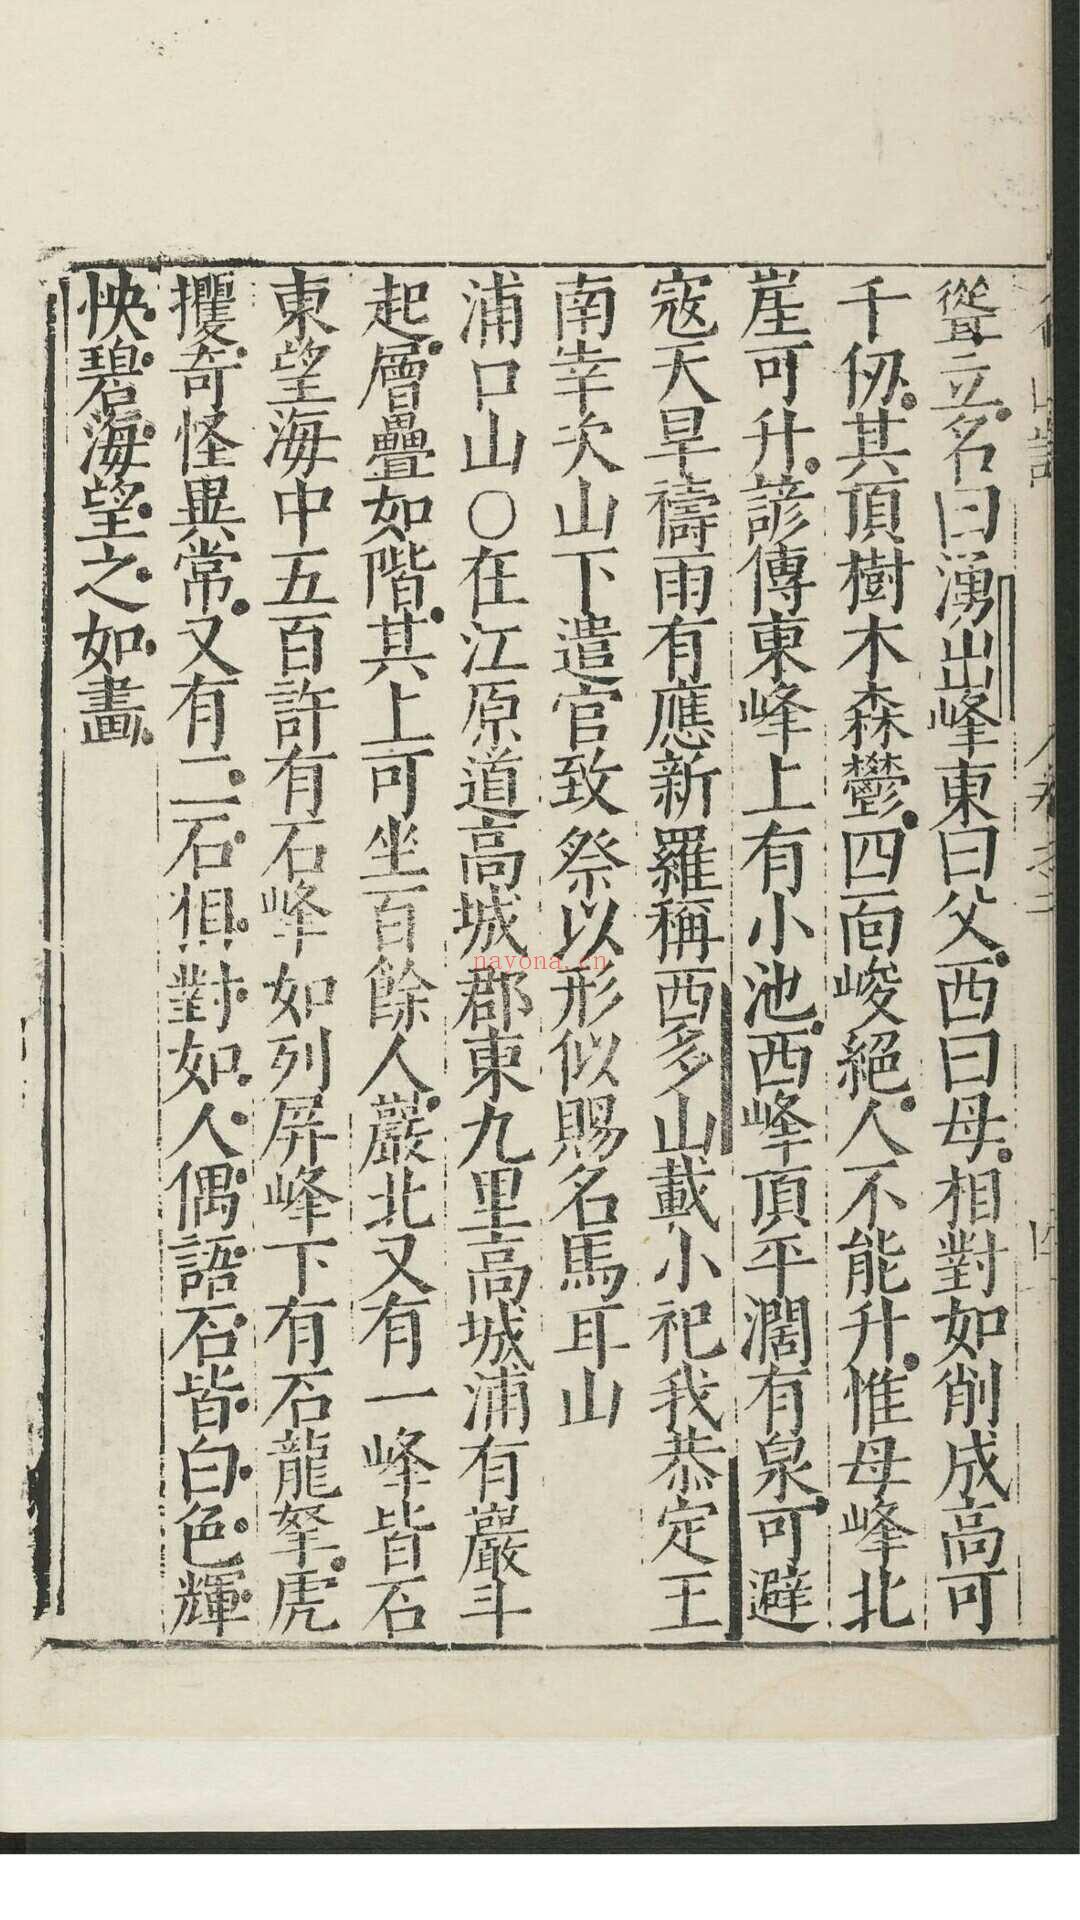 聳立名曰湧出峰東曰父西曰母相對如削成高可
千仭其頂樹木森鬱四面峻絕人不能升惟母峰北
崖可升諺傳東峰上有小池西峰頂平濶有泉可避
寇天旱禱雨有應新羅稱西多山載小祀我恭定王
南幸次山下遣官致祭以形似賜名馬耳山
浦口山○在江原道高城郡東九里高城浦有巖斗
起層疊如階其上可坐百餘人巖北又有一峰皆石
東望海中五百許有石峰如列屏峰下有石龍拏虎
攫奇怪異常又有二石俱對如人偶語石皆白色輝
快碧海望之如畫
nayona.cn